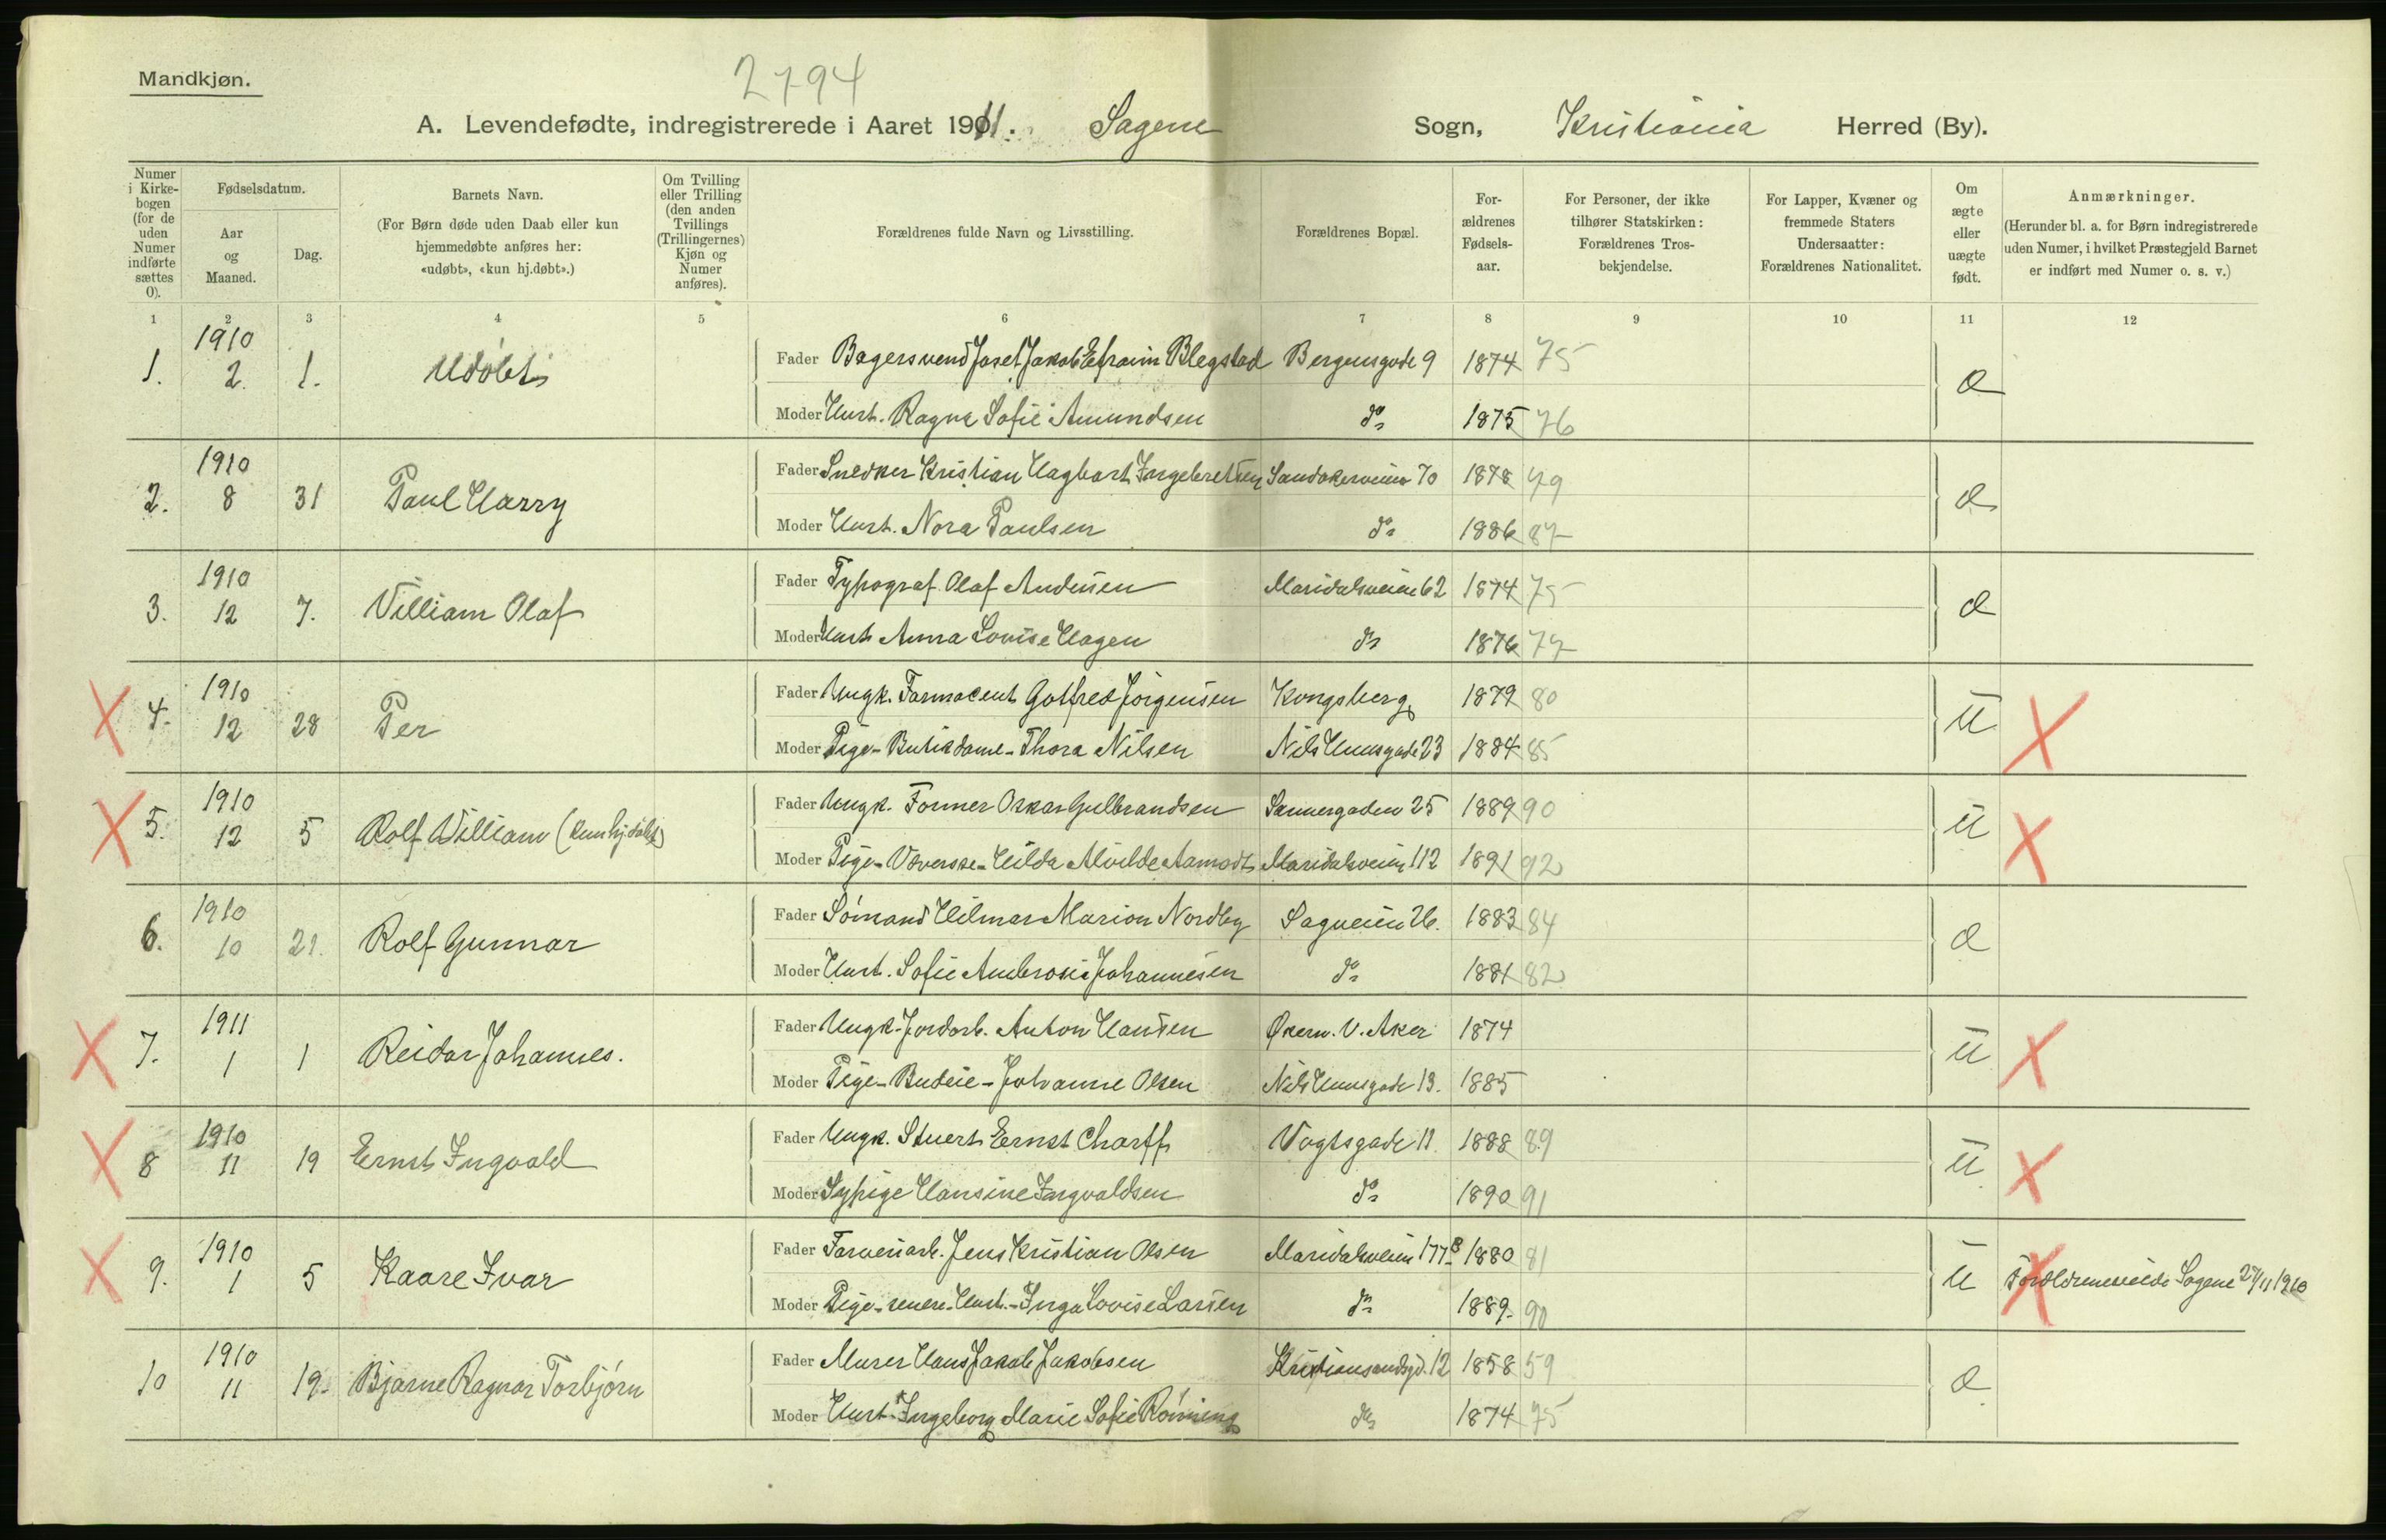 Mandkjøn.
2794
A. Levendefødte, indregistrerede i Aaret 1911. Sagene Sogn, Kristiania Herred (By).
Numer i Kirkebogen (for de uden Numer indførte sættes 0).
Fødselsdatum.
Aar og Maaned.
Dag.
Barnets Navn.
(For Børn døde uden Daab eller kun hjemmedøbte anføres her: «udøbt», «kun hj.døbt».)
Om Tvilling eller Trilling (den anden Tvillings (Trillingernes) Kjøn og Numer anføres).
Forældrenes fulde Navn og Livsstilling.
Forældrenes Bopæl.
Forældrenes Fødselsaar.
For Personer, der ikke tilhører Statskirken: Forældrenes Trosbekjendelse.
For Lapper, Kvæner og fremmede Staters Undersaatter: Forældrenes Nationalitet.
Om ægte eller uægte født.
Anmærkninger.
(Herunder bl. a. for Børn indregistrerede uden Numer, i hvilket Præstegjeld Barnet er indført med Numer o. s. v.)
1 2 3 4 5 6 7 8 9 10 11 12
1. 1910 2. 1. Udøbt
Fader Bagersvend Josef Jakob Efraim Blegstad Bergensgade 9 1874 75
Moder Hust. Ragna Sofie Amundsen do 1875 76
2. 1910 8 31 Paul Harry
Fader Snedker Kristian Hagbart Ingebretsen Sandakerveien 70 1878 79
Moder Hust. Nora Paulsen do 1886 87
3. 1910 12 7. William Olaf
Fader Typograf Olaf Andersen Maridalsveien 62 1874 75
Moder Hust. Anna Lovise Hagen do 1876 77
4. 1910 12 28 Per
Fader Ungk. Farmaceut Gotfred Jörgensen Kongsberg 1879 80
Moder Pige - Butikdame - Thora Nilsen Nils Huusgade 23 1884 85
u
5. 1910 12 5 Rolf William (kun hj.døbt)
Fader Ungk. Former Oskar Gulbrandsen Sannergaden 25 1889 90
Moder Pige - Væverske - Hilda Alvilde Aamodt Maridalsveien 112 1891 92
u
6. 1910 10 21. Rolf Gunnar
Fader Sömand Hilmar Marion Nordby Sagveien 26. 1883 84
Moder Hust. Sofie Ambrosie Johannesen do 1881 82
7. 1911 1 1 Reidar Johannes.
Fader Ungk. Jordarb. Anton Hansen Økern. V. Aker 1874
Moder Pige - Budeie - Johanne Olsen Nils Huusgade 13. 1885
u
8 1910 11 19 Ernst Ingvald
Fader Ungk. Stuert Ernst Charff Vogtsgade 11 1888 89
Moder Sypige Hansine Ingvaldsen do 1890 91
u
9. 1910 1 5 Kaare Ivar
Fader Farveriarb. Jens Kristian Olsen Maridalsveien 177B 1880 81
Moder Pige - senere Hust. - Inga Lovise Larsen do 1889 90
u Forældrene viede Sagene 27/11 1910
10 1910 11 19. Bjarne Ragnar Torbjörn
Fader Murer Hans Jakob Jakobsen Kristiansandsgd. 12 1858 59
Moder Hust. Ingeborg Marie Sofie Rönning do 1874 75